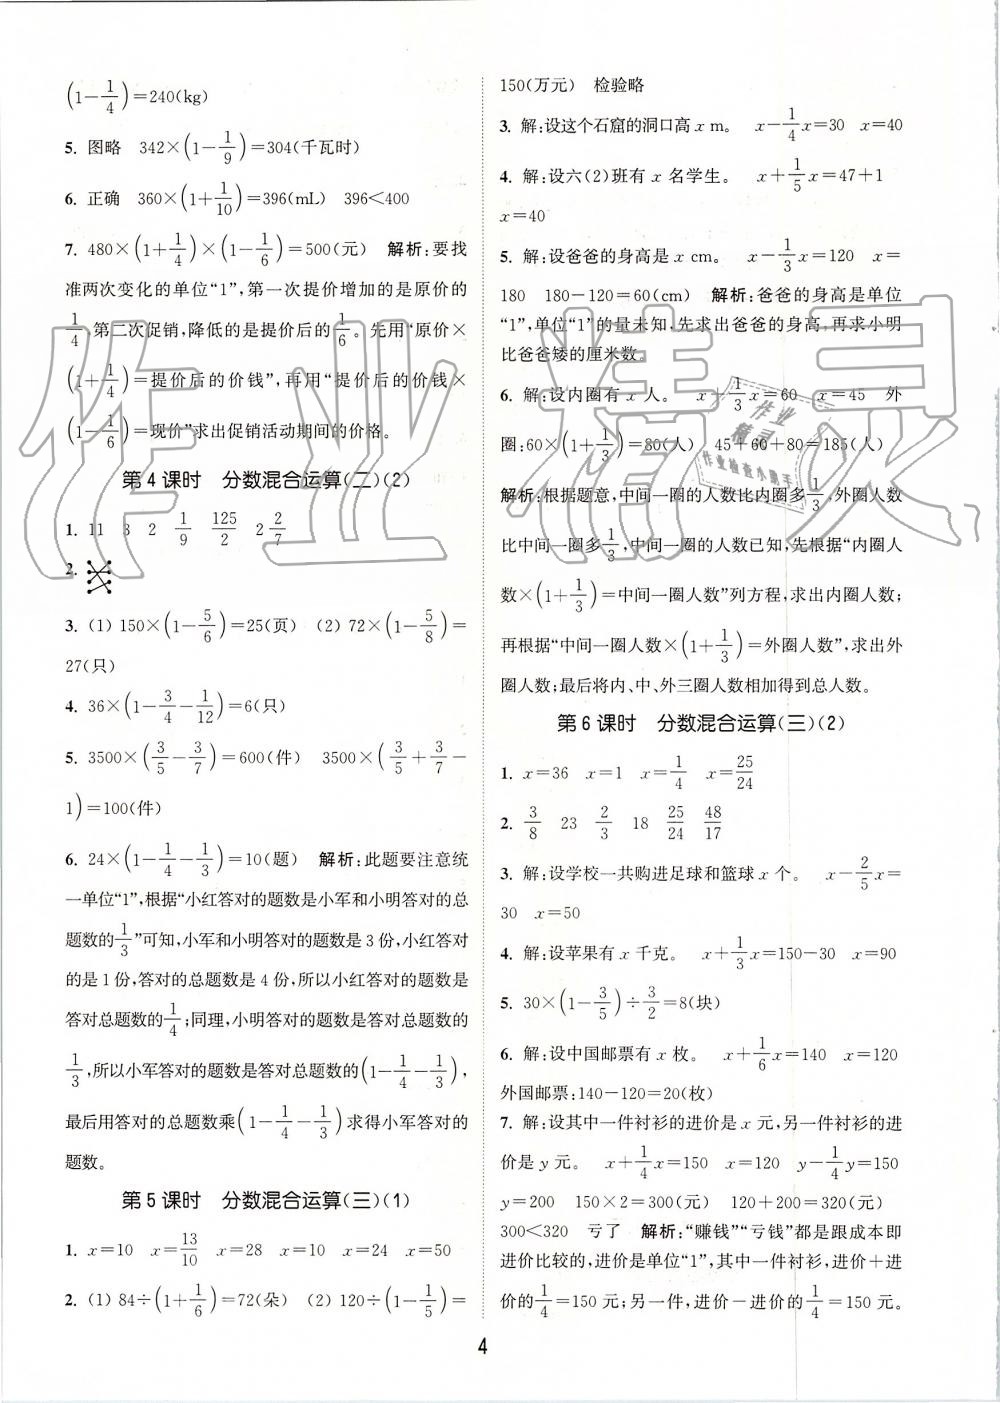 (1-1/4)=240(kg)
5. 图略 342×(1-1/9)=304(千瓦时)
6. 正确 360×(1+1/10)=396(mL) 396<400
7. 480×(1+1/4)×(1-1/6)=500(元) 解析:要找
准两次变化的单位“1”,第一次提价增加的是原价的
1/4,第二次促销,降低的是提价后的1/6。先用“原价×
(1+1/4)=提价后的价钱”,再用“提价后的价钱×
(1-1/6)=现价”求出促销活动期间的价格。
第4课时 分数混合运算(二)(2)
1. 11 3 2 1/9 125/2 2 2/7
2.
3. (1) 150×(1-5/6)=25(页) (2) 72×(1-5/8)=
27(只)
4. 36×(1-3/4-1/12)=6(只)
5. 3500×(3/5-3/7)=600(件) 3500×(3/5+3/7-
1)=100(件)
6. 24×(1-1/4-1/3)=10(题) 解析:此题要注意统
一单位“1”,根据“小红答对的题数是小军和小明答对的总
题数的1/3”可知,小军和小明答对的题数是3份,小红答对
的是1份,答对的总题数是4份,所以小红答对的题数是
答对总题数的1/4;同理,小明答对的题数是答对总题数的
1/3,所以小军答对的题数是答对总题数的(1-1/4-1/3),
最后用答对的总题数乘(1-1/4-1/3)求得小军答对的
题数。
第5课时 分数混合运算(三)(1)
1. x=10 x=13/10 x=28 x=10 x=24 x=50
2. (1) 84÷(1+1/6)=72(朵) (2) 120÷(1-1/5)=
150(万元) 检验略
3. 解:设这个石窟的洞口高x m。 x-1/4x=30 x=40
4. 解:设六(2)班有x名学生。 x+1/5x=47+1
x=40
5. 解:设爸爸的身高是x cm。 x-1/3x=120 x=
180 180-120=60(cm) 解析:爸爸的身高是单位
“1”,单位“1”的量未知,先求出爸爸的身高,再求小明
比爸爸矮的厘米数。
6. 解:设内圈有x人。 x+1/3x=60 x=45 外
圈:60×(1+1/3)=80(人) 45+60+80=185(人)
解析:根据题意,中间一圈的人数比内圈多1/3,外圈人数
比中间一圈多1/3,中间一圈的人数已知,先根据“内圈人
数×(1+1/3)=中间一圈人数”列方程,求出内圈人数;
再根据“中间一圈人数×(1+1/3)=外圈人数”,求出外
圈人数;最后将内、中、外三圈人数相加得到总人数。
第6课时 分数混合运算(三)(2)
1. x=36 x=1 x=1/4 x=25/24
2. 3/8 23 2/3 18 25/24 48/17
3. 解:设学校一共购进足球和篮球x个。 x-2/5x=
30 x=50
4. 解:设苹果有x千克。 x+1/3x=150-30 x=90
5. 30×(1-3/5)÷3/2=8(块)
6. 解:设中国邮票有x枚。 x+1/6x=140 x=120
外国邮票:140-120=20(枚)
7. 解:设其中一件衬衫的进价是x元,另一件衬衫的进
价是y元。 x+1/4x=150 x=120 y-1/4y=150
y=200 150×2=300(元) 120+200=320(元)
300<320 亏了 解析:“赚钱”“亏钱”都是跟成本即
进价比较的,进价是单位“1”,其中一件衬衫,进价+进
价的1/4=150元;另一件,进价-进价的1/4=150元。
4
作业精灵
作业
精灵
作业检查小助手